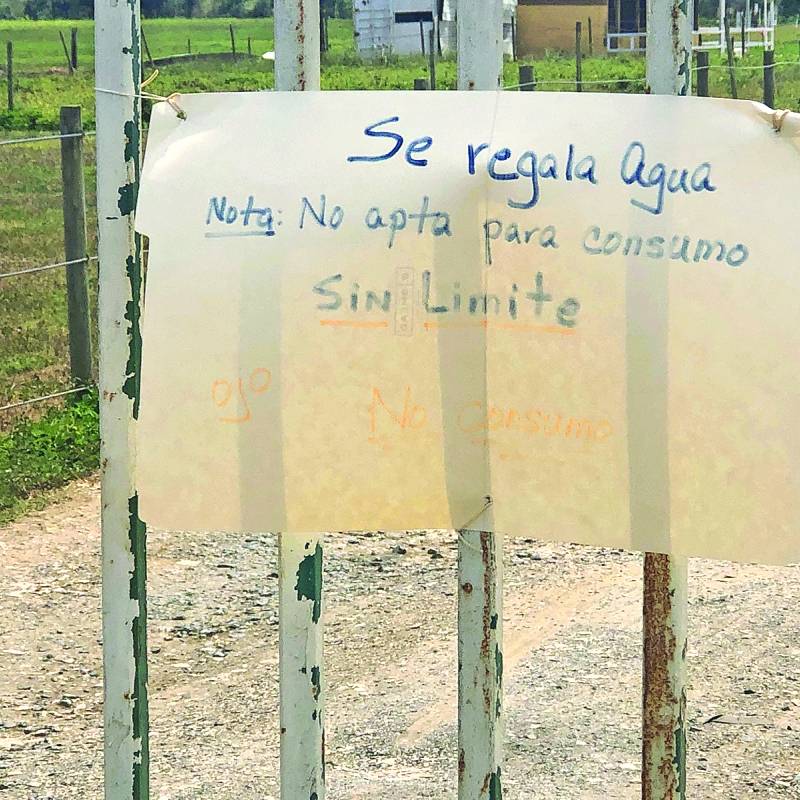 Se regala Agua
Nota: No apta para consumo
SiN Limite
ojo No consumo